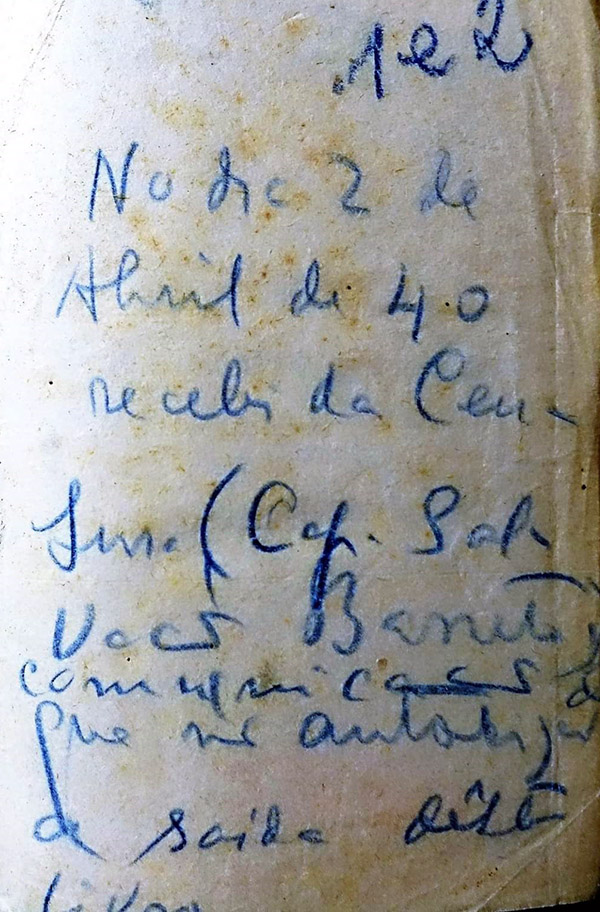 1 e 2
No dia 2 de
Abril de 40
recebi da Cen-
sura (Cap. Sal-
vação Barreto)
comunicação de
que me autorizava
a saída dêste
livro